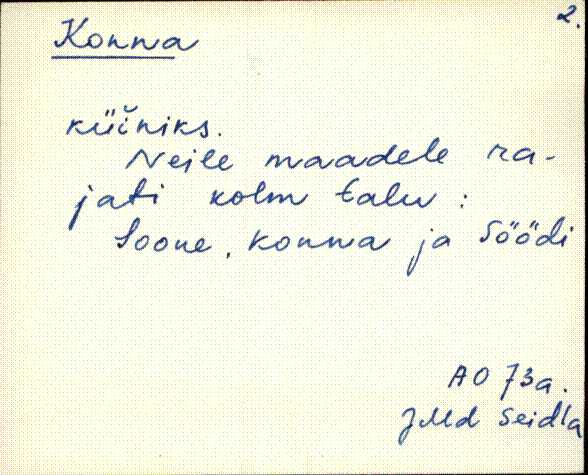 2.
Konna
küüniks.
Neile maadele ra-
jati kolm talu:
Soone, Konna ja Söödi
AO 73a.
JMd Seidla